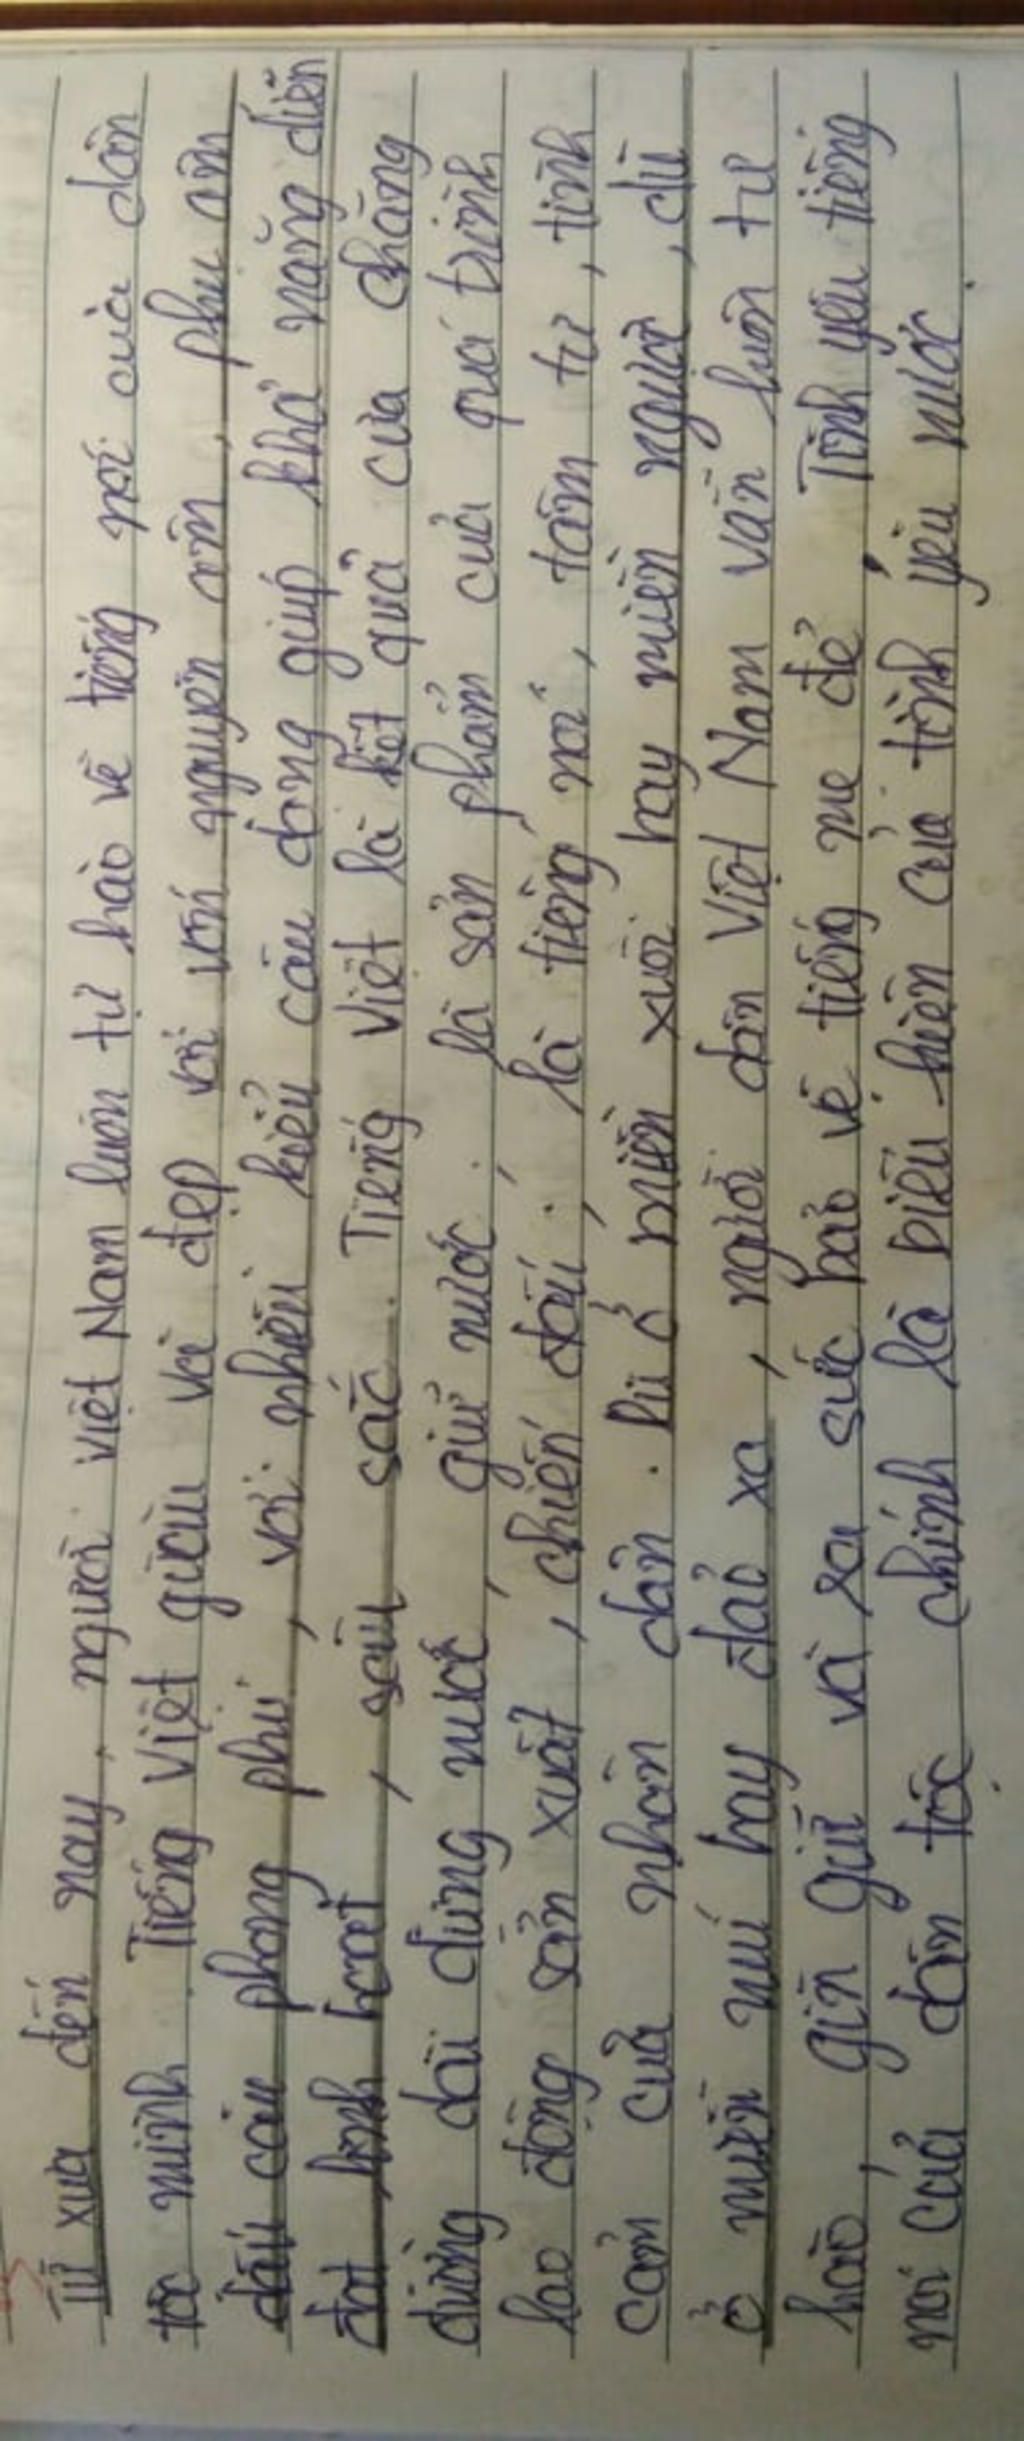 Từ xưa đến nay, người Việt Nam luôn tự hào về tiếng nói của dân
tộc mình. Tiếng Việt giàu và đẹp với vốn nguyên âm, phụ âm
dấu câu phong phú, với nhiều kiểu câu đong giúp khả năng diễn
đạt linh hoạt, sâu sắc. Tiếng Việt là kết quả của chặng
đường dài dựng nước, giữ nước. là sản phẩm của quá trình
lao động sản xuất, chiến đấu, là tiếng nói, tâm tư, tình
cảm của nhân dân. Dù ở miền xuôi hay miền ngược, dù
ở miền núi hay đảo xa, người dân Việt Nam vẫn luôn tự
hào, gìn giữ và ra sức bảo vệ tiếng mẹ đẻ. Tình yêu tiếng
nói của dân tộc chính là biểu hiện của tình yêu nước.